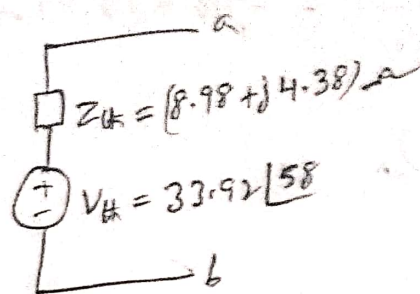 a
Zth = (8.98 + j 4.38) Ω
+
-
Vth = 33.92 ∠58
b